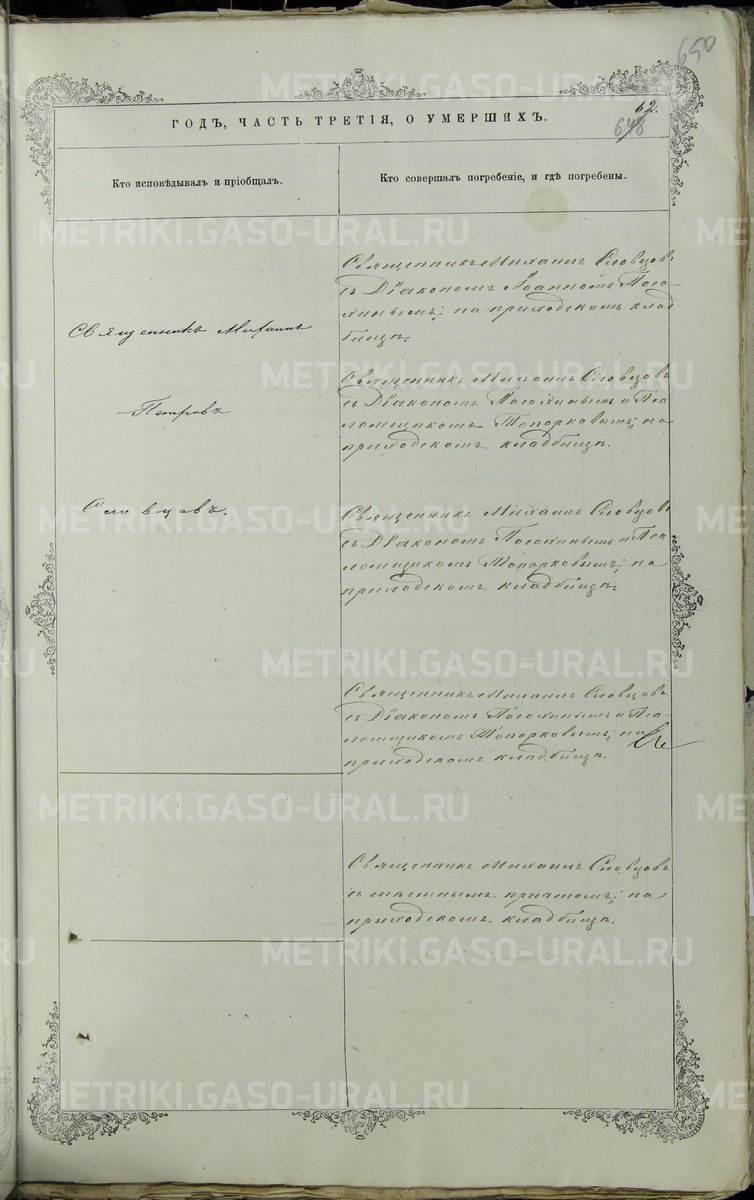 650
62.
648
ГОДЪ, ЧАСТЬ ТРЕТІЯ, О УМЕРШИХЪ.
Кто исповѣдывалъ и пріобщалъ.
Кто совершалъ погребеніе, и гдѣ погребены.
Священникъ Михаилъ Словцовъ
съ Діакономъ Іоанномъ Посо-
хинымъ; на приходскомъ клад-
бищѣ.
Священникъ Михаилъ
Священникъ Михаилъ Словцовъ
съ Діакономъ Посохинымъ и Пса-
ломщикомъ Топорковымъ; на
приходскомъ кладбищѣ.
Петровъ
Словцовъ.
Священникъ Михаилъ Словцовъ
съ Діакономъ Посохинымъ и Пса-
ломщикомъ Топорковымъ; на
приходскомъ кладбищѣ.
Священникъ Михаилъ Словцовъ
съ Діакономъ Посохинымъ и Пса-
ломщикомъ Топорковымъ; на
приходскомъ кладбищѣ.
Священникъ Михаилъ Словцовъ
съ мѣстнымъ причтомъ; на
приходскомъ кладбищѣ.
METRIKI.GASO-URAL.RU